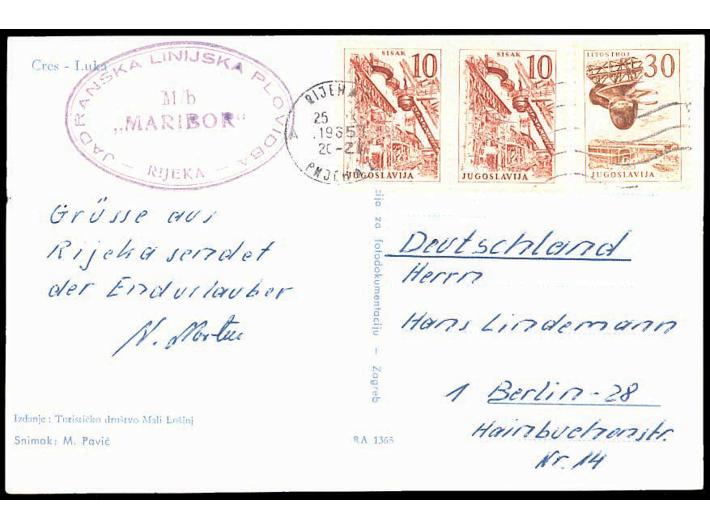 Cres - Luka
JADRANSKA LINIJSKA PLOVIDBA
M/b
„MARIBOR"
- RIJEKA -
RIJEKA
25
1965
20-21
РИЈЕКА
SISAK
10
JUGOSLAVIJA
SISAK
10
JUGOSLAVIJA
LITOSTROJ
30
JUGOSLAVIJA
Grüsse aus
Rijeka sendet
der Endurlauber
N.
Izdanje: Turističko društvo Mali Lošinj
Snimak: M. Pavić
cija za fotodokumentaciju - Zagreb
RA 1365
Deutschland
Herrn
Hans Lindemann
1 Berlin-28
Hainbuchenstr.
Nr. 14